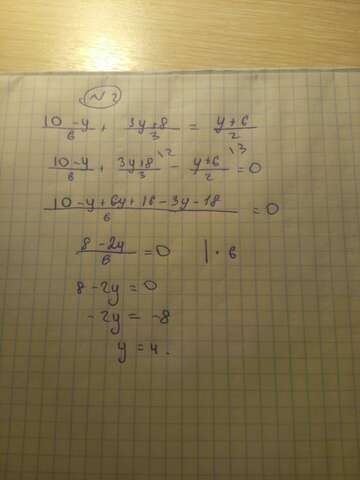 N 2
(10 - y)/6 + (3y+8)/3 = (y+6)/2
(10 - y)/6 + (3y+8)/3 \2 - (y+6)/2 \3 = 0
(10 - y + 6y + 16 - 3y - 18)/6 = 0
(8 - 2y)/6 = 0 | · 6
8 - 2y = 0
- 2y = -8
y = 4.